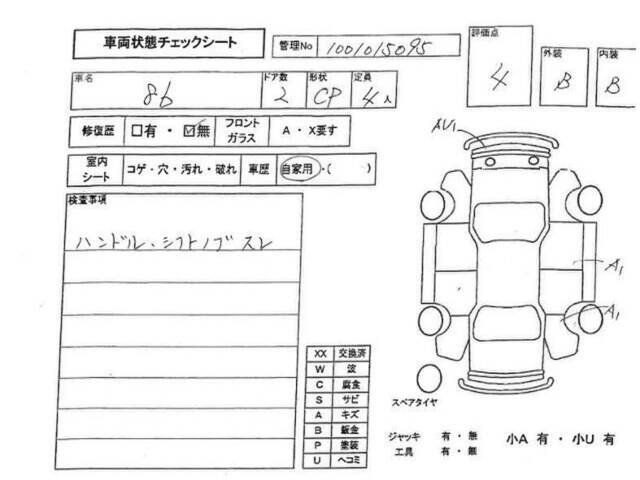 車両状態チェックシート 管理No 1001015095
評価点 4 外装 B 内装 B
車名 86 ドア数 2 形状 CP 定員 4人
修復歴 □有・☑無 フロントガラス A・X要す
室内シート コゲ・穴・汚れ・破れ 車歴 自家用・( )
検査事項
ハンドル、シフトノブ スレ
AU1
A1
A1
XX 交換済
W 波
C 腐食
S サビ
A キズ
B 鈑金
P 塗装
U ヘコミ
スペアタイヤ
ジャッキ 有・無
工具 有・無
小A 有・小U 有